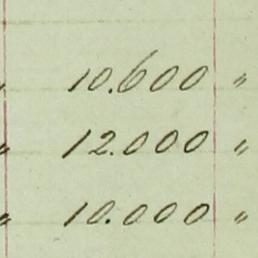 " 10.600 "
" 12.000 "
" 10.000 "